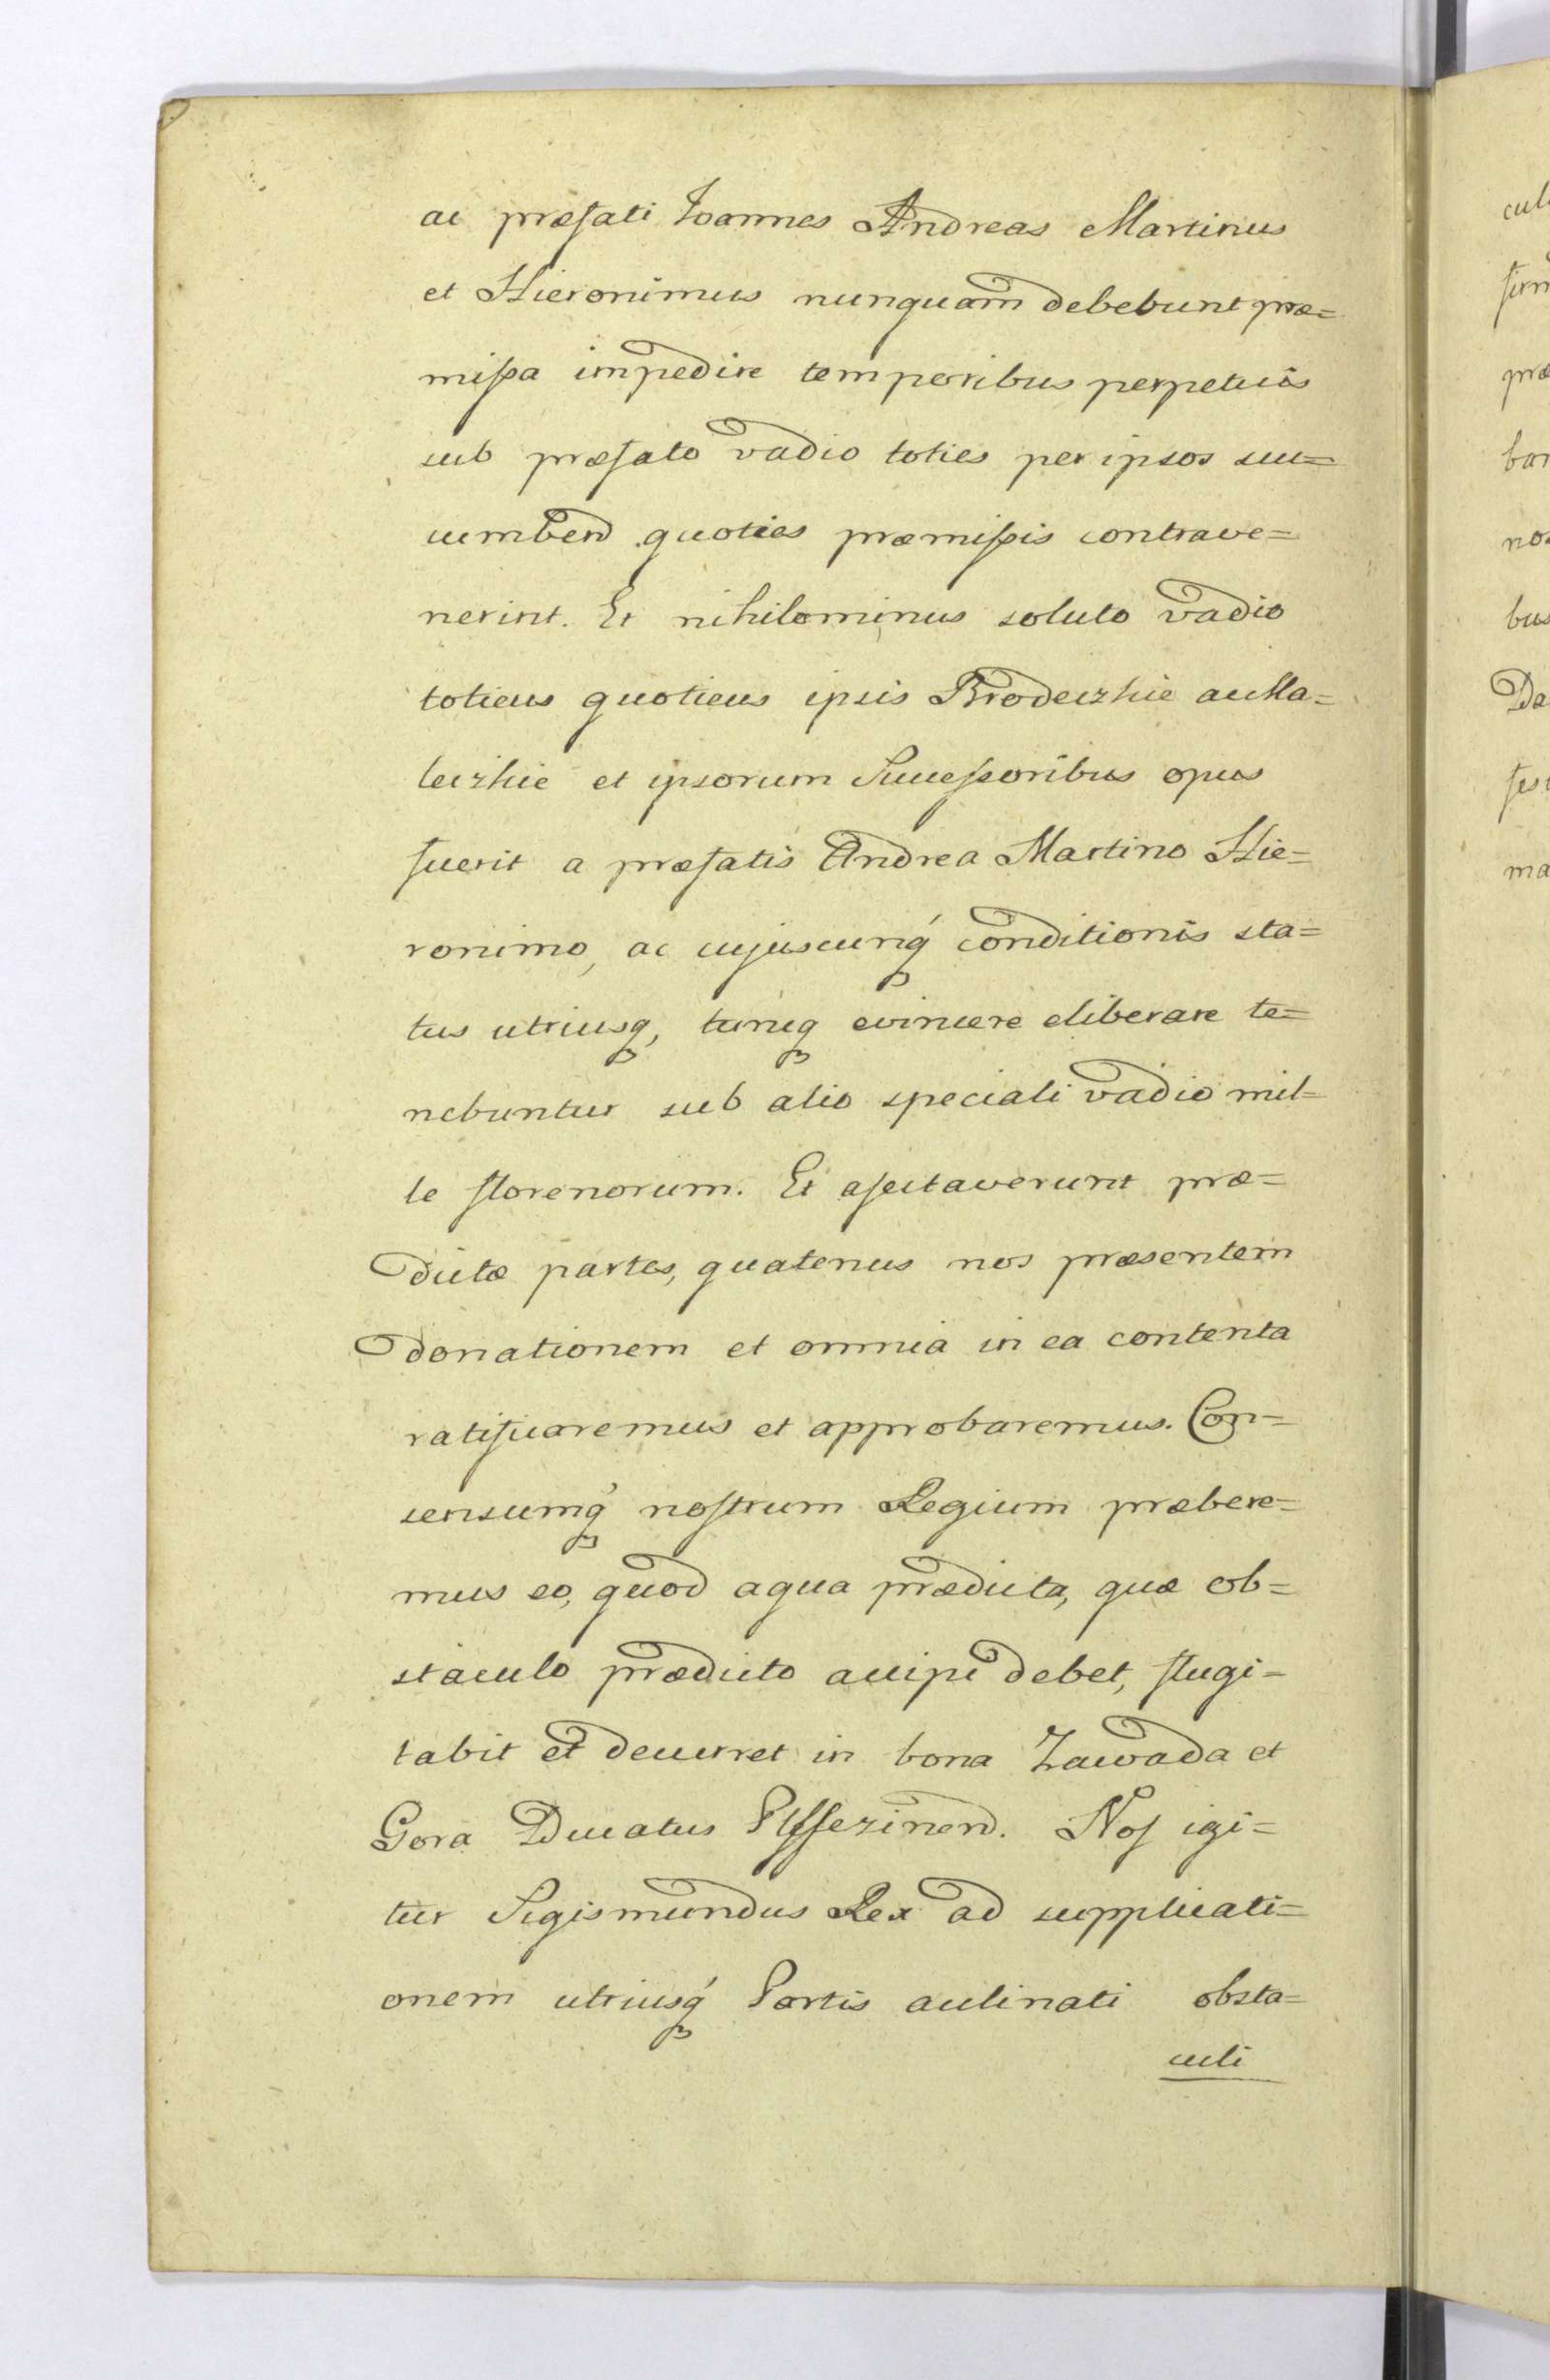 ac præfati Joannes Andreas Martinus
et Hieronimus nunquam debebunt præ=
missa impedire temporibus perpetuis
sub præfato vadio toties per ipsos suc=
cumbend quoties præmissis contrave=
nerint. Et nihilominus soluto vadio
toticus quoticus ipsis Brodeczkie ac Ma=
leczkie et ipsorum Successoribus opus
fuerit a præfatis Andrea Martino Hie=
ronimo, ac cujuscunq́ conditionis sta=
tus utriusq, tuncq evincere eliberare te=
nebuntur sub alio speciali vadio mil=
le florenorum. Et afectaverunt præ=
dictæ partes, quatenus nos præsentem
donationem et omnia in ea contenta
ratificaremus et approbaremus. Con=
sensumq́ nostrum Regium præbere=
mus eo, quod aqua prædicta, quæ ob=
staculo prædicto accipi debet, flugi=
tabit et decurret in bona Zawada et
Gora Ducatus Osserinen. Nos igi=
tur Sigismundus Rex ad supplicati=
onem utriusq́ Partis aclinati obsta=
culi
cul
firm
præ
bar
nos
bus
Da
fes
ma